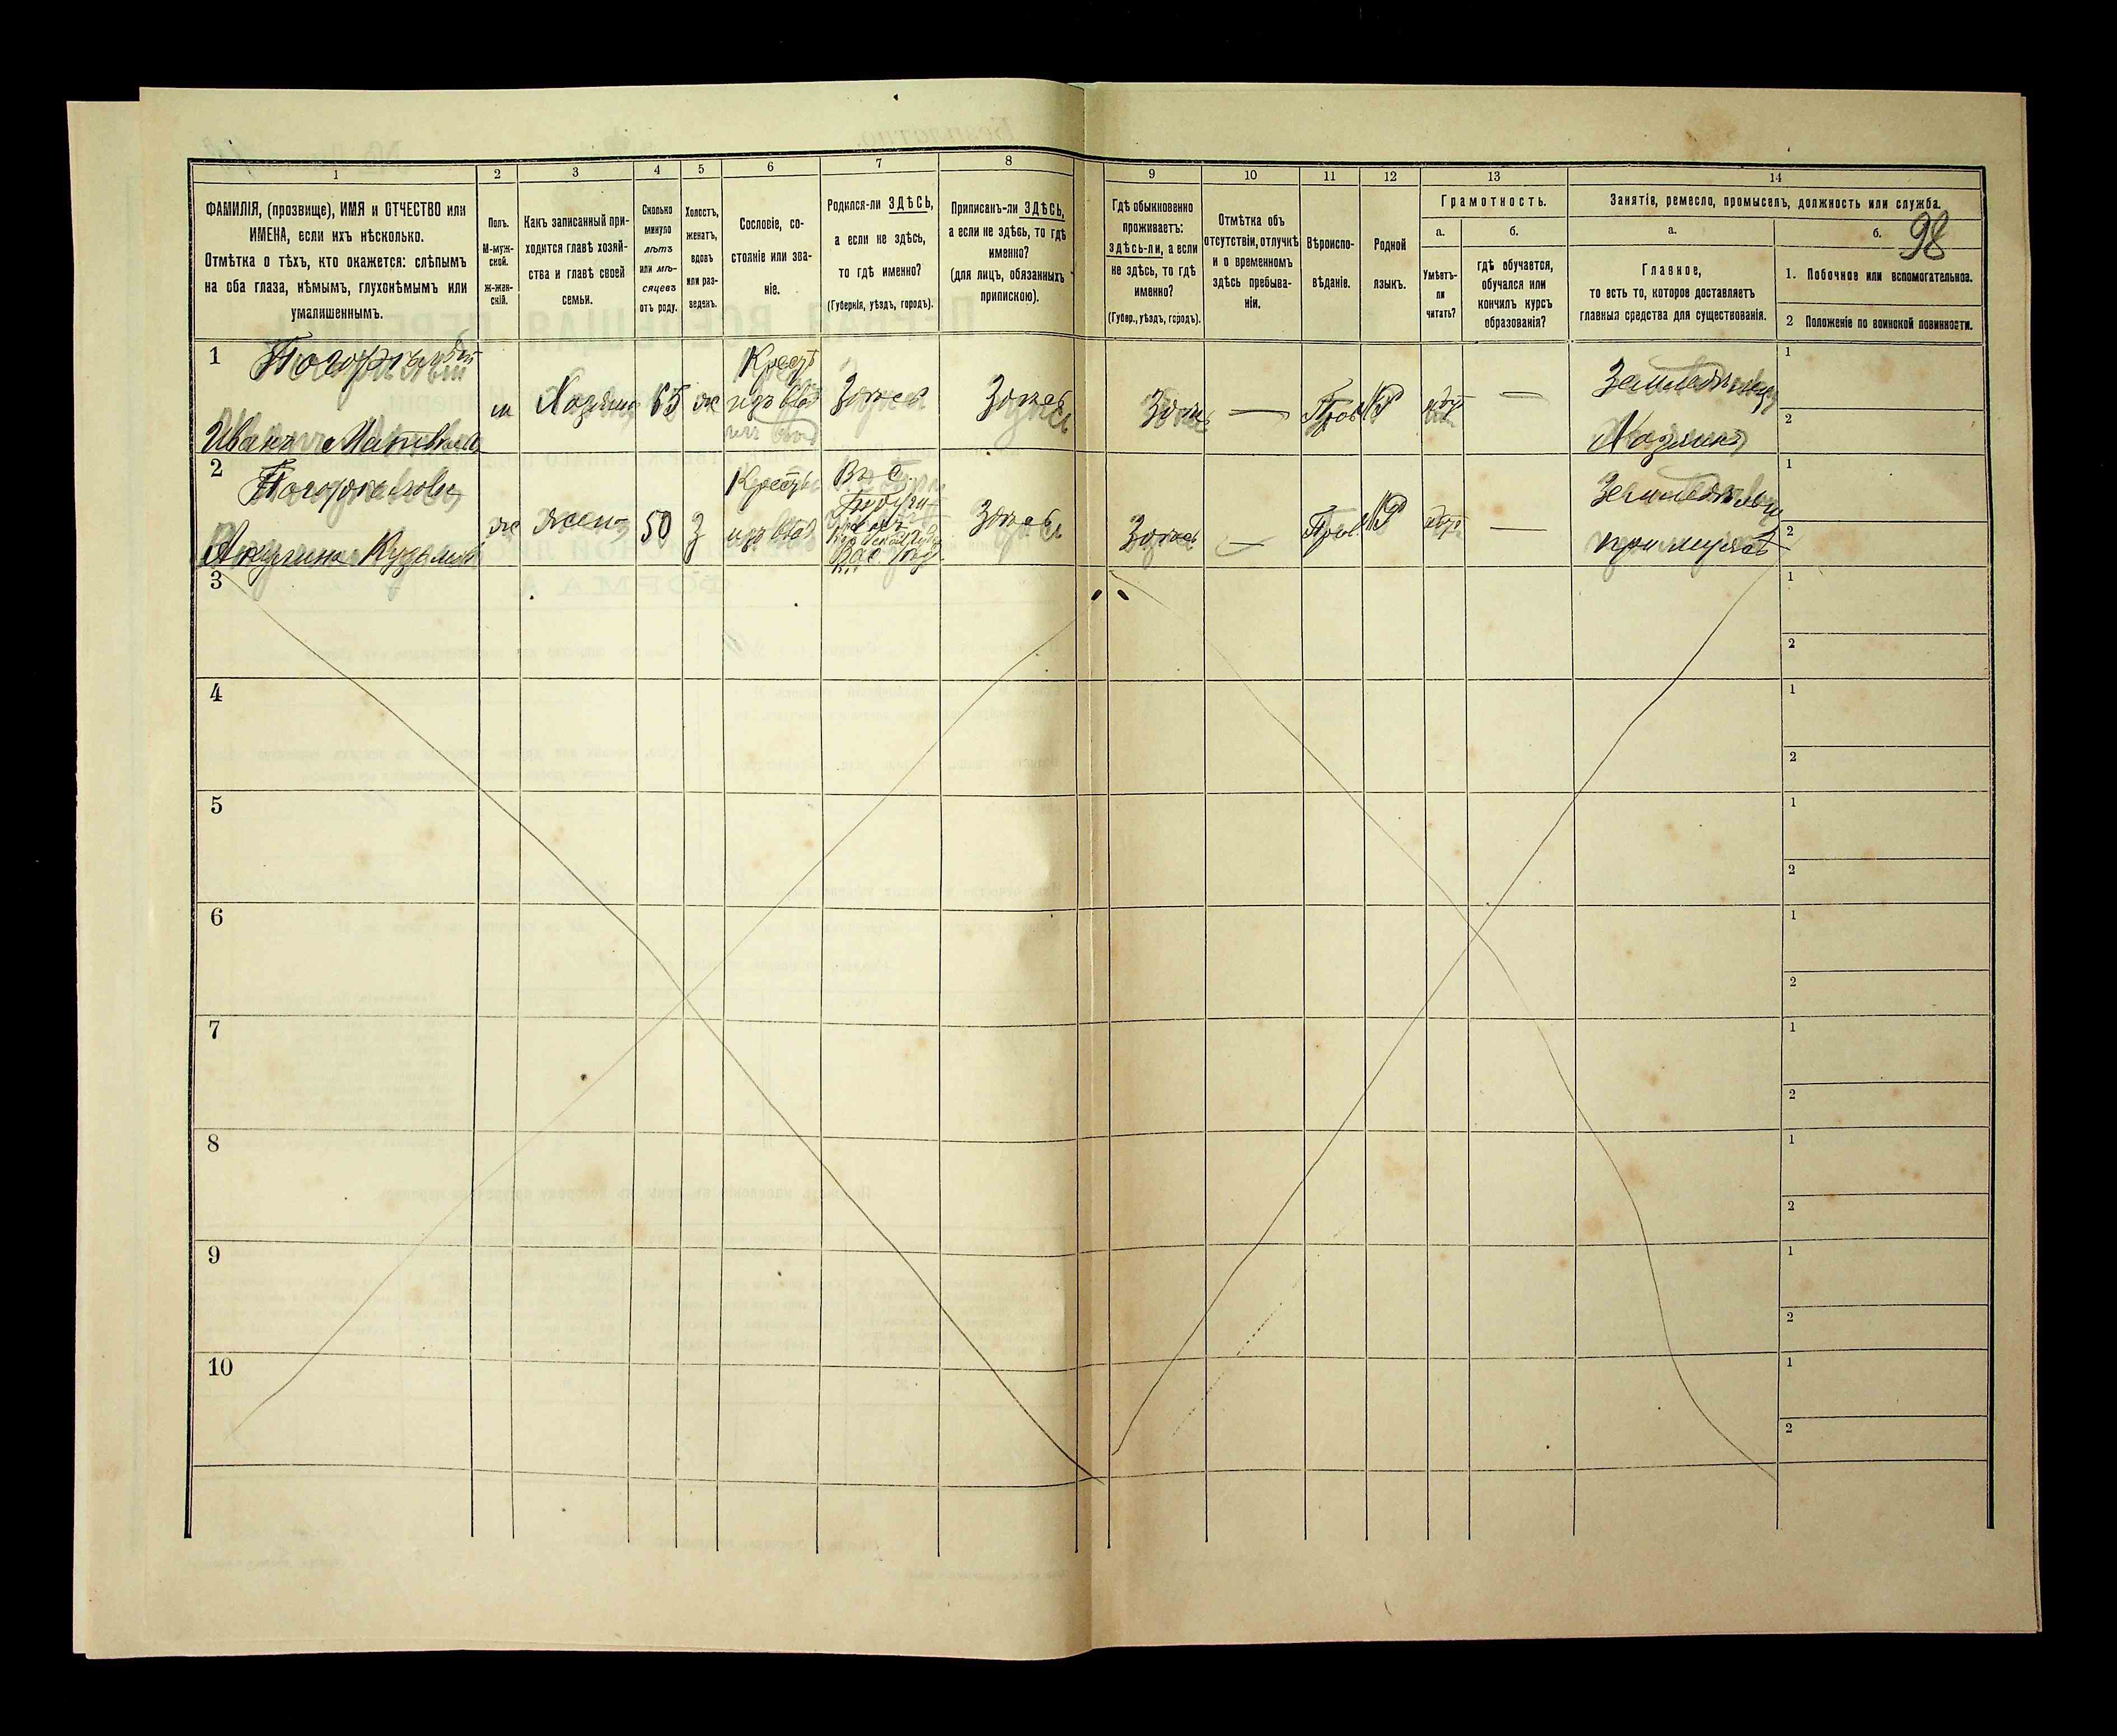 98
1
2
3
4
5
6
7
8
9
10
11
12
13
14
ФАМИЛІЯ, (прозвище), ИМЯ и ОТЧЕСТВО или
ИМЕНА, если ихъ нѣсколько.
Отмѣтка о тѣхъ, кто окажется: слѣпымъ
на оба глаза, нѣмымъ, глухонѣмымъ или
умалишеннымъ.
Полъ.
М-муж-
ской.
ж-жен-
скій.
Какъ записанный при-
ходится главѣ хозяй-
ства и главѣ своей
семьи.
Сколько
минуло
лѣтъ
или мѣ-
сяцевъ
отъ роду.
Холостъ,
женатъ,
вдовъ
или раз-
веденъ.
Сословіе, со-
стояніе или зва-
ніе.
Родился-ли ЗДѢСЬ,
а если не здѣсь,
то гдѣ именно?
(Губернія, уѣздъ, городъ).
Приписанъ-ли ЗДѢСЬ,
а если не здѣсь, то гдѣ
именно?
(для лицъ, обязанныхъ
припискою).
Гдѣ обыкновенно
проживаетъ:
здѣсь-ли, а если
не здѣсь, то гдѣ
именно?
(Губер., уѣздъ, городъ).
Отмѣтка объ
отсутствіи, отлучкѣ
и о временномъ
здѣсь пребыва-
ніи.
Вѣроиспо-
вѣданіе.
Родной
языкъ.
Грамотность.
а.
Умѣетъ-
ли
читать?
б.
гдѣ обучается,
обучался или
кончилъ курсъ
образованія?
Занятія, ремесло, промыселъ, должность или служба.
а.
Главное,
то есть то, которое доставляетъ
главныя средства для существованія.
б.
1. Побочное или вспомогательное.
2 Положеніе по воинской повинности.
1
Иванъ
м
Хозяинъ
65
ж
Крест
изъ влад
Здѣсь
Здѣсь
Здѣсь
—
Прав
Р
—
Хозяинъ
1
2
2
Акулина Кузьмин
ж
жена
50
З
Крест
изъ влад
Въ с.
Здѣсь
Здѣсь
—
Прав
Р
—
1
2
3
1
2
4
1
2
5
1
2
6
1
2
7
1
2
8
1
2
9
1
2
10
1
2